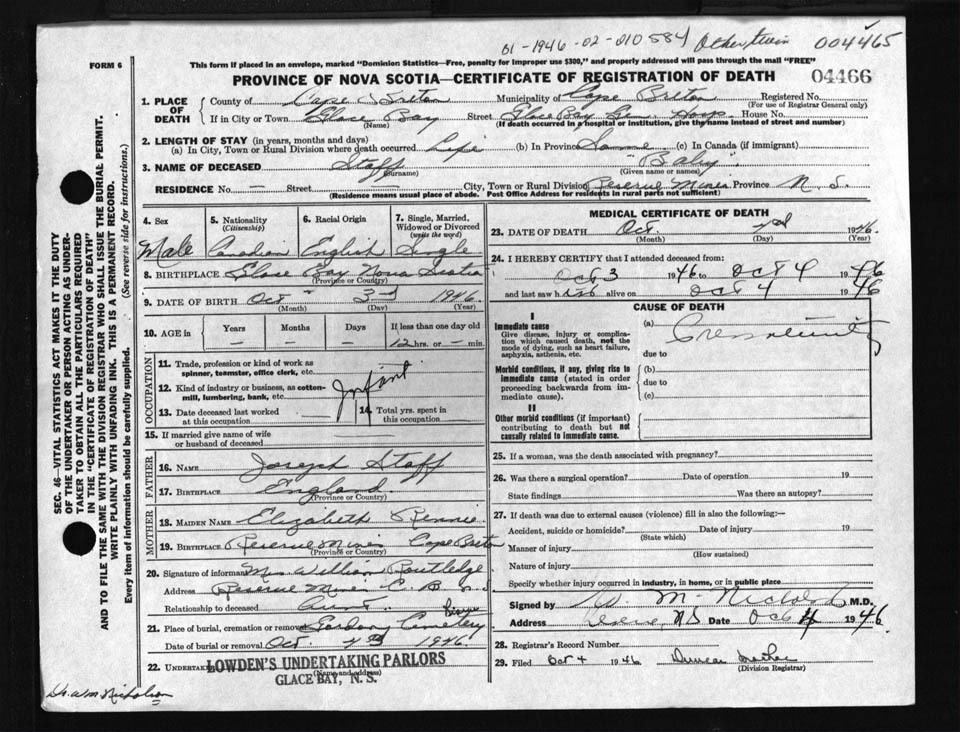 01-1946-02-010584 Other twin 004465
FORM 6
This form if placed in an envelope, marked "Dominion Statistics—Free, penalty for improper use $300," and properly addressed will pass through the mail "FREE"
PROVINCE OF NOVA SCOTIA—CERTIFICATE OF REGISTRATION OF DEATH 04466
1. PLACE OF DEATH County of Cape Breton Municipality of Cape Breton Registered No.
(For use of Registrar General only)
If in City or Town Glace Bay Street Glace Bay Gen. Hosp. House No.
(Name) (If death occurred in a hospital or institution, give the name instead of street and number)
2. LENGTH OF STAY (in years, months and days)
(a) In City, Town or Rural Division where death occurred Life (b) In Province Same (c) In Canada (if immigrant)
3. NAME OF DECEASED Staff "Baby"
(Surname) (Given name or names)
RESIDENCE No. — Street — City, Town or Rural Division Reserve Mines Province N. S.
(Residence means usual place of abode. Post Office Address for residents in rural parts not sufficient)
4. Sex Male
5. Nationality (Citizenship) Canadian
6. Racial Origin English
7. Single, Married, Widowed or Divorced (write the word) Single
8. BIRTHPLACE Glace Bay Nova Scotia
(Province or Country)
9. DATE OF BIRTH Oct 3rd 1946
(Month) (Day) (Year)
10. AGE in Years Months Days If less than one day old
— — — 12 hrs. or — min.
OCCUPATION
11. Trade, profession or kind of work as spinner, teamster, office clerk, etc.
12. Kind of industry or business, as cotton-mill, lumbering, bank, etc. Infant
13. Date deceased last worked at this occupation
14. Total yrs. spent in this occupation
15. If married give name of wife or husband of deceased
FATHER
16. NAME Joseph Staff
17. BIRTHPLACE England
(Province or Country)
MOTHER
18. MAIDEN NAME Elizabeth Rennie
19. BIRTHPLACE Reserve Mines Cape Breton
(Province or Country)
20. Signature of informant Mrs William Routledge
Address Reserve Mines C. B. N.S
Relationship to deceased Aunt.
21. Place of burial, cremation or removal Cemetery
Date of burial or removal Oct. 4th 1946
22. Undertaker LOWDEN'S UNDERTAKING PARLORS
(Name and address)
GLACE BAY, N. S.
MEDICAL CERTIFICATE OF DEATH
23. DATE OF DEATH Oct. 1946
(Month) (Day) (Year)
24. I HEREBY CERTIFY that I attended deceased from:
Oct 3 1946 to Oct 4 1946
and last saw h alive on Oct 4 1946
CAUSE OF DEATH
I
Immediate cause
Give disease, injury or complication which caused death, not the mode of dying, such as heart failure, asphyxia, asthenia, etc.
(a) Prematurity
due to
Morbid conditions, if any, giving rise to immediate cause (stated in order proceeding backwards from immediate cause).
(b)
due to
(c)
II
Other morbid conditions (if important) contributing to death but not causally related to immediate cause.
25. If a woman, was the death associated with pregnancy?
26. Was there a surgical operation? Date of operation 19
State findings Was there an autopsy?
27. If death was due to external causes (violence) fill in also the following:—
Accident, suicide or homicide? Date of injury 19
(State which)
Manner of injury
(How sustained)
Nature of injury
Specify whether injury occurred in industry, in home, or in public place
Signed by M.D.
Address N.S Date Oct 4 1946
28. Registrar's Record Number
29. Filed Oct 4 1946 Duncan
(Division Registrar)
SEC. 46—VITAL STATISTICS ACT MAKES IT THE DUTY
OF THE UNDERTAKER OR PERSON ACTING AS UNDER-
TAKER TO OBTAIN ALL THE PARTICULARS REQUIRED
IN THE "CERTIFICATE OF REGISTRATION OF DEATH"
AND TO FILE THE SAME WITH THE DIVISION REGISTRAR WHO SHALL ISSUE THE BURIAL PERMIT.
WRITE PLAINLY WITH UNFADING INK. THIS IS A PERMANENT RECORD.
Every item of information should be carefully supplied. (See reverse side for instructions.)
Dr. Wm Nicholson